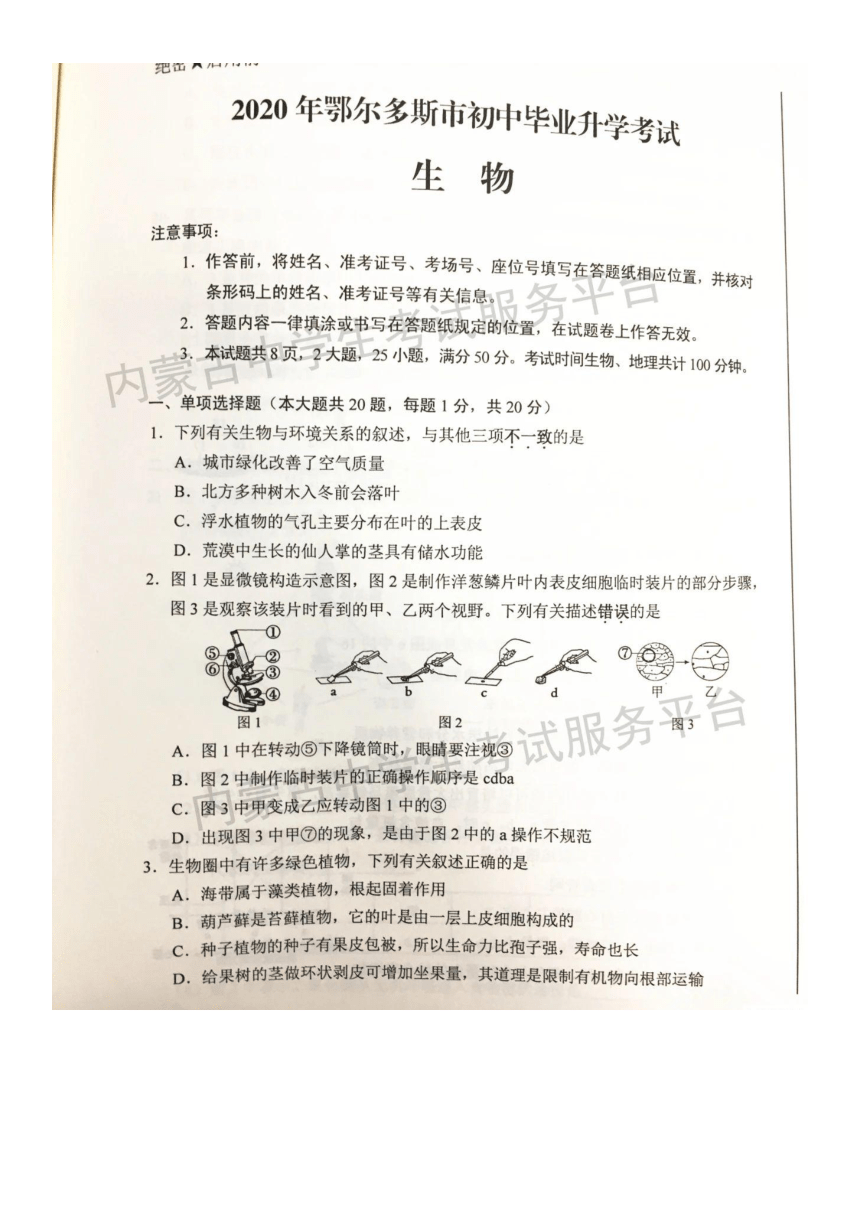 2020 年鄂尔多斯市初中毕业升学考试
生 物
注意事项：
1. 作答前，将姓名、准考证号、考场号、座位号填写在答题纸相应位置，并核对
条形码上的姓名、准考证号等有关信息。
2. 答题内容一律填涂或书写在答题纸规定的位置，在试题卷上作答无效。
3. 本试题共 8 页，2 大题，25 小题，满分 50 分。考试时间生物、地理共计 100 分钟。
内蒙古中学生考试服务平台
一、单项选择题（本大题共 20 题，每题 1 分，共 20 分）
1. 下列有关生物与环境关系的叙述，与其他三项不一致的是
A. 城市绿化改善了空气质量
B. 北方多种树木入冬前会落叶
C. 浮水植物的气孔主要分布在叶的上表皮
D. 荒漠中生长的仙人掌的茎具有储水功能
2. 图 1 是显微镜构造示意图，图 2 是制作洋葱鳞片叶内表皮细胞临时装片的部分步骤，
图 3 是观察该装片时看到的甲、乙两个视野。下列有关描述错误的是
① ② ③ ④ ⑤ ⑥
a b c d
⑦ 甲 乙
图 1 图 2 图 3
A. 图 1 中在转动⑤下降镜筒时，眼睛要注视③
B. 图 2 中制作临时装片的正确操作顺序是 cdba
C. 图 3 中甲变成乙应转动图 1 中的③
D. 出现图 3 中甲⑦的现象，是由于图 2 中的 a 操作不规范
内蒙古中学生考试服务平台
3. 生物圈中有许多绿色植物，下列有关叙述正确的是
A. 海带属于藻类植物，根起固着作用
B. 葫芦藓是苔藓植物，它的叶是由一层上皮细胞构成的
C. 种子植物的种子有果皮包被，所以生命力比孢子强，寿命也长
D. 给果树的茎做环状剥皮可增加坐果量，其道理是限制有机物向根部运输